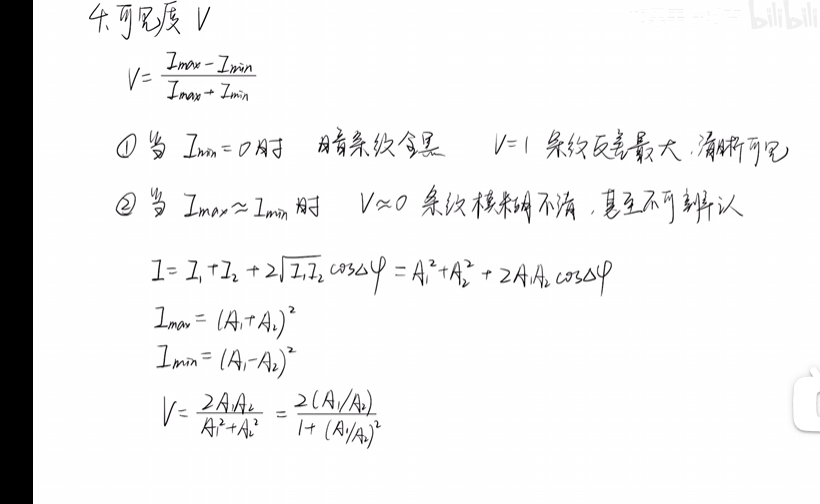 4. 可见度 V
bilibili
V = (Imax - Imin) / (Imax + Imin)
① 当 Imin = 0 时 暗条纹全黑 V=1 条纹反差最大, 清晰可见
② 当 Imax ≈ Imin 时 V≈0 条纹模糊不清, 甚至不可辨认
I = I₁ + I₂ + 2√(I₁I₂) cosΔφ = A₁² + A₂² + 2A₁A₂ cosΔφ
Imax = (A₁+A₂)²
Imin = (A₁-A₂)²
V = 2A₁A₂ / (A₁²+A₂²) = 2(A₁/A₂) / (1+(A₁/A₂)²)